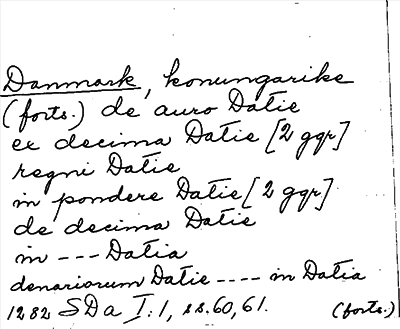 Danmark, konungarike
(forts.) de auro Datie
ex decima Datie [2 ggr]
regni Datie
in pondere Datie [2 ggr]
de decima Datie
in --- Datia
denariorum Datie ---- in Datia
1282 SDa I:1, ss. 60, 61. (forts.)